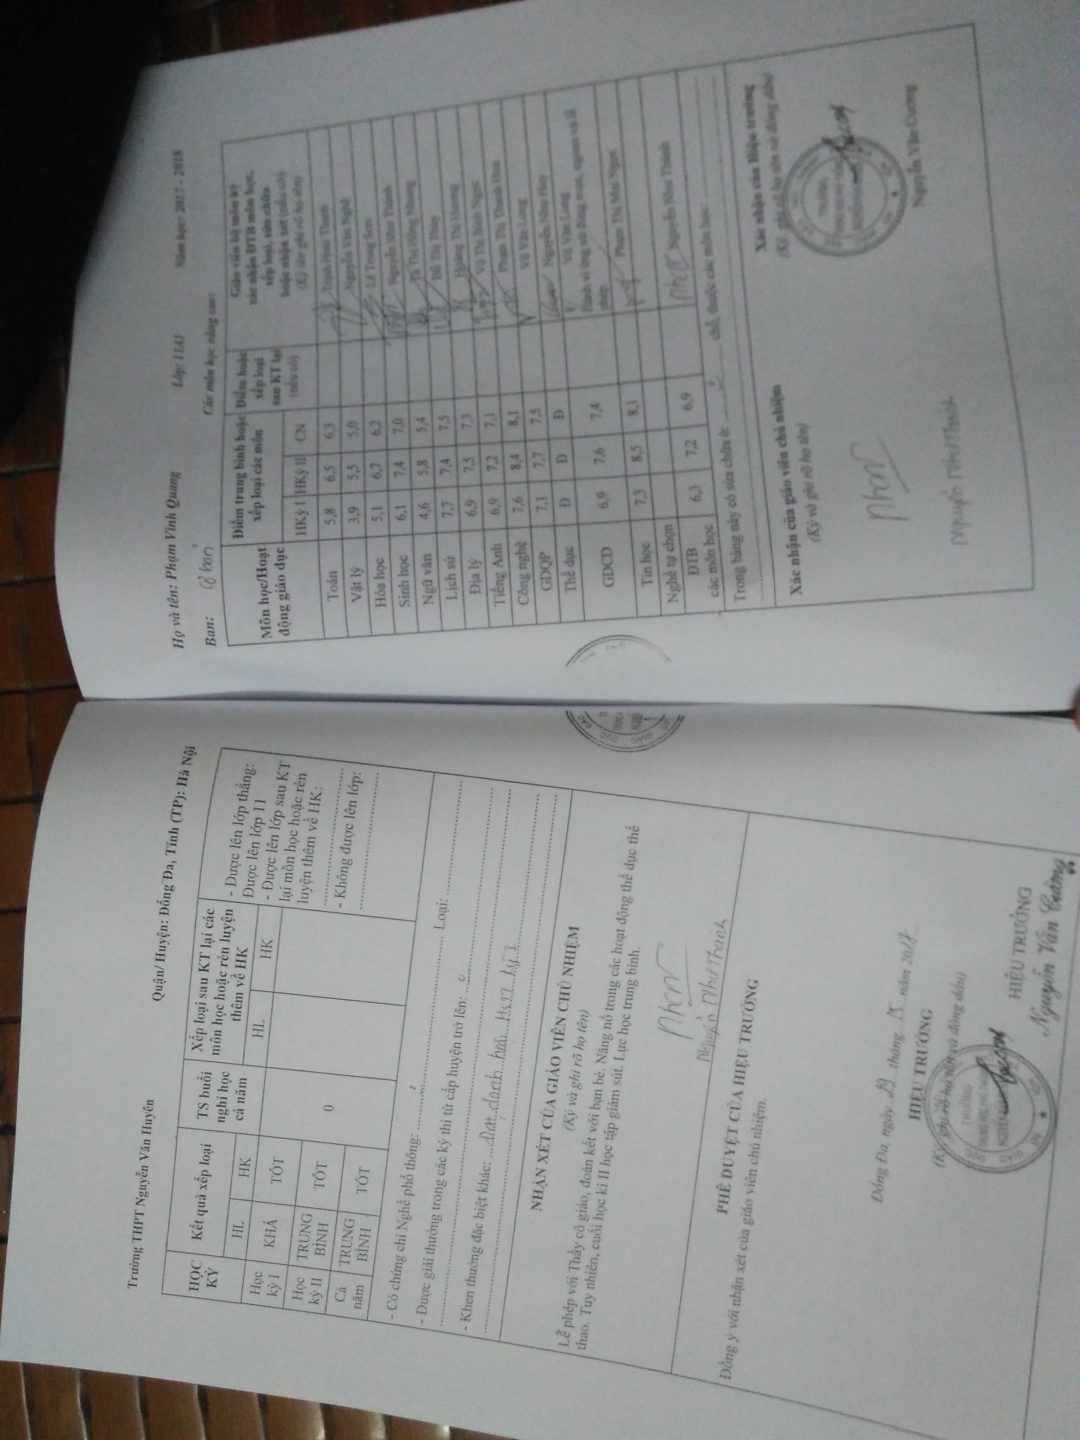 Trường THPT Nguyễn Văn Huyên
Quận/ Huyện: Đống Đa, Tỉnh (TP): Hà Nội
HỌC KỲ
Kết quả xếp loại
TS buổi nghỉ học cả năm
Xếp loại sau KT lại các môn học hoặc rèn luyện thêm về HK
HL HK HL HK
Học kỳ I KHÁ TỐT
Học kỳ II TRUNG BÌNH TỐT
0
Cả năm TRUNG BÌNH TỐT
- Được lên lớp thẳng:
Được lên lớp 11
- Được lên lớp sau KT
lại môn học hoặc rèn
luyện thêm về HK:
- Không được lên lớp:
- Có chứng chỉ Nghề phổ thông: Loại:
- Được giải thưởng trong các kỳ thi từ cấp huyện trở lên:
- Khen thưởng đặc biệt khác: đạt danh hiệu HSTT kỳ I
NHẬN XÉT CỦA GIÁO VIÊN CHỦ NHIỆM
(Ký và ghi rõ họ tên)
Lễ phép với Thầy cô giáo, đoàn kết với bạn bè. Năng nổ trong các hoạt động thể dục thể
thao. Tuy nhiên, cuối học kì II học tập giảm sút. Lực học trung bình.
Nguyễn Như Thành
PHÊ DUYỆT CỦA HIỆU TRƯỞNG
Đồng ý với nhận xét của giáo viên chủ nhiệm.
Đống Đa, ngày 29 tháng 5 năm 2017
HIỆU TRƯỞNG
(Ký, ghi rõ họ tên và đóng dấu)
HIỆU TRƯỞNG
Nguyễn Văn Cường
Họ và tên: Phạm Vinh Quang
Lớp: 11A1
Năm học: 2017 - 2018
Ban: Cơ bản
Các môn học nâng cao:
Môn học/Hoạt động giáo dục
Điểm trung bình hoặc xếp loại các môn
Điểm hoặc xếp loại sau KT lại (nếu có)
Giáo viên bộ môn ký xác nhận ĐTB môn học, xếp loại, sửa chữa hoặc nhận xét (nếu có)
(Ký tên ghi rõ họ tên)
HKỳ I HKỳ II CN
Toán 5,8 6,5 6,3 Trịnh Hoài Thanh
Vật lý 3,9 5,5 5,0 Nguyễn Văn Nghệ
Hóa học 5,1 6,7 6,2 Lê Trung Sơn
Sinh học 6,1 7,4 7,0 Nguyễn Như Thành
Ngữ văn 4,6 5,8 5,4 Tạ Thị Hồng Nhung
Lịch sử 7,7 7,4 7,5 Đỗ Thị Thủy
Địa lý 6,9 7,5 7,3 Hoàng Thị Hương
Tiếng Anh 6,9 7,2 7,1 Vũ Thị Bích Ngọc
Công nghệ 7,6 8,4 8,1 Phạm Thị Thanh Hoa
GDQP 7,1 7,7 7,5 Vũ Văn Long
Thể dục Đ Đ Đ Nguyễn Như Huy
Vũ Văn Long
GDCD 6,9 7,6 7,4
Hành vi ứng xử đúng mực, người tử tế
Phạm Thị Như Ngọc
Tin học 7,3 8,5 8,1
Nghề tự chọn
ĐTB các môn học 6,3 7,2 6,9 Nguyễn Như Thành
Trong bảng này có sửa chữa ở: chỗ, thuộc các môn học:
Xác nhận của giáo viên chủ nhiệm
(Ký và ghi rõ họ tên)
Nguyễn Như Thành
Xác nhận của Hiệu trưởng
(Ký, ghi rõ họ tên và đóng dấu)
Nguyễn Văn Cường